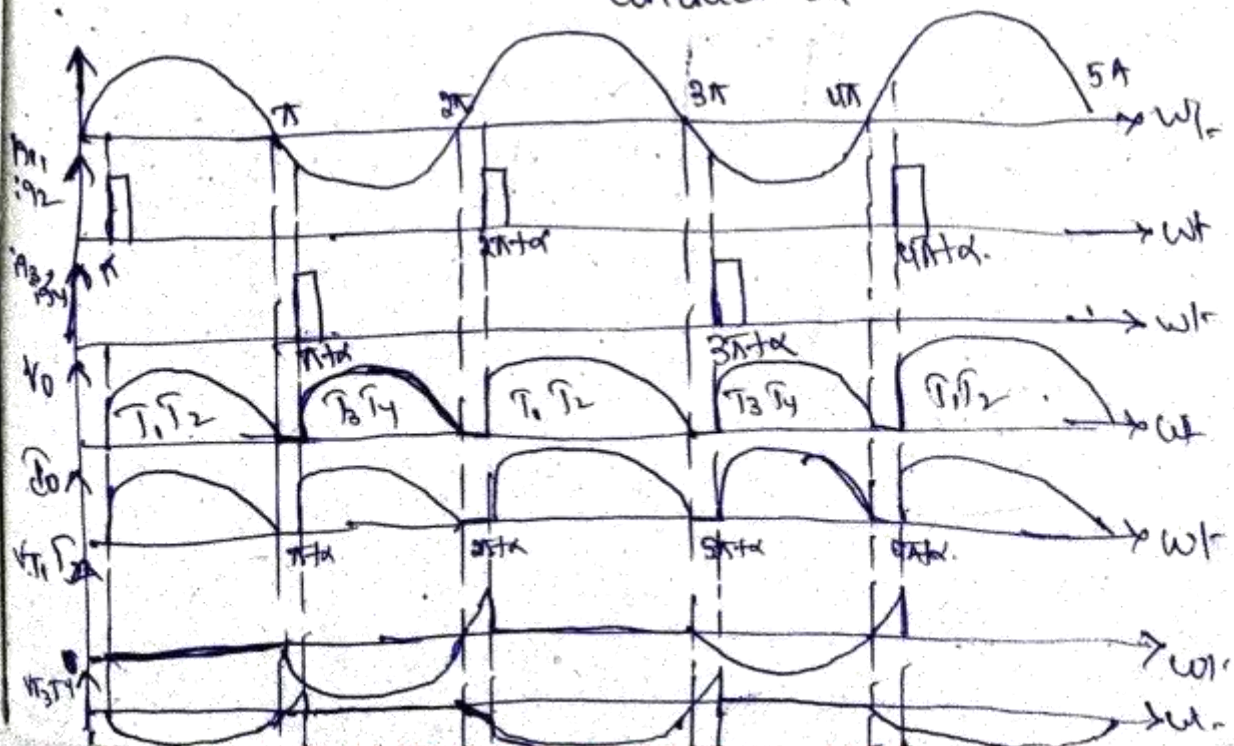 π 2π 3π 4π 5π ωt
ig1
ig2
2π+α 4π+α. ωt
π+α 3π+α ωt
V0 T1T2 T3T4 T1T2 T3T4 T1T2 ωt
I0
π+α 2π+α 3π+α 4π+α. ωt
VT1T2
ωt
VT3T4 ωt